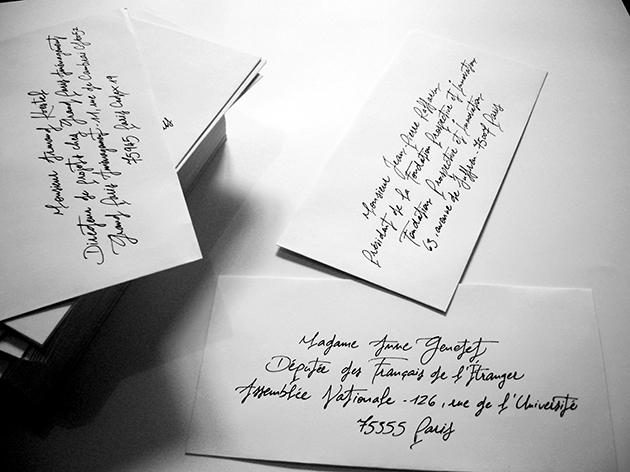 Monsieur Armand
Directeur de projets chez Grand Paris Aménagement
Grand Paris Aménagement - 11, rue de Cambrai
75945 Paris Cedex 19
Monsieur Jean-Pierre Raffarin
Président de la Fondation Prospective et Innovation
Fondation Prospective et Innovation
63, avenue de Suffren 75007 Paris
Madame Anne Genetet
Députée des Français de l'Étranger
Assemblée Nationale - 126, rue de l'Université
75355 Paris